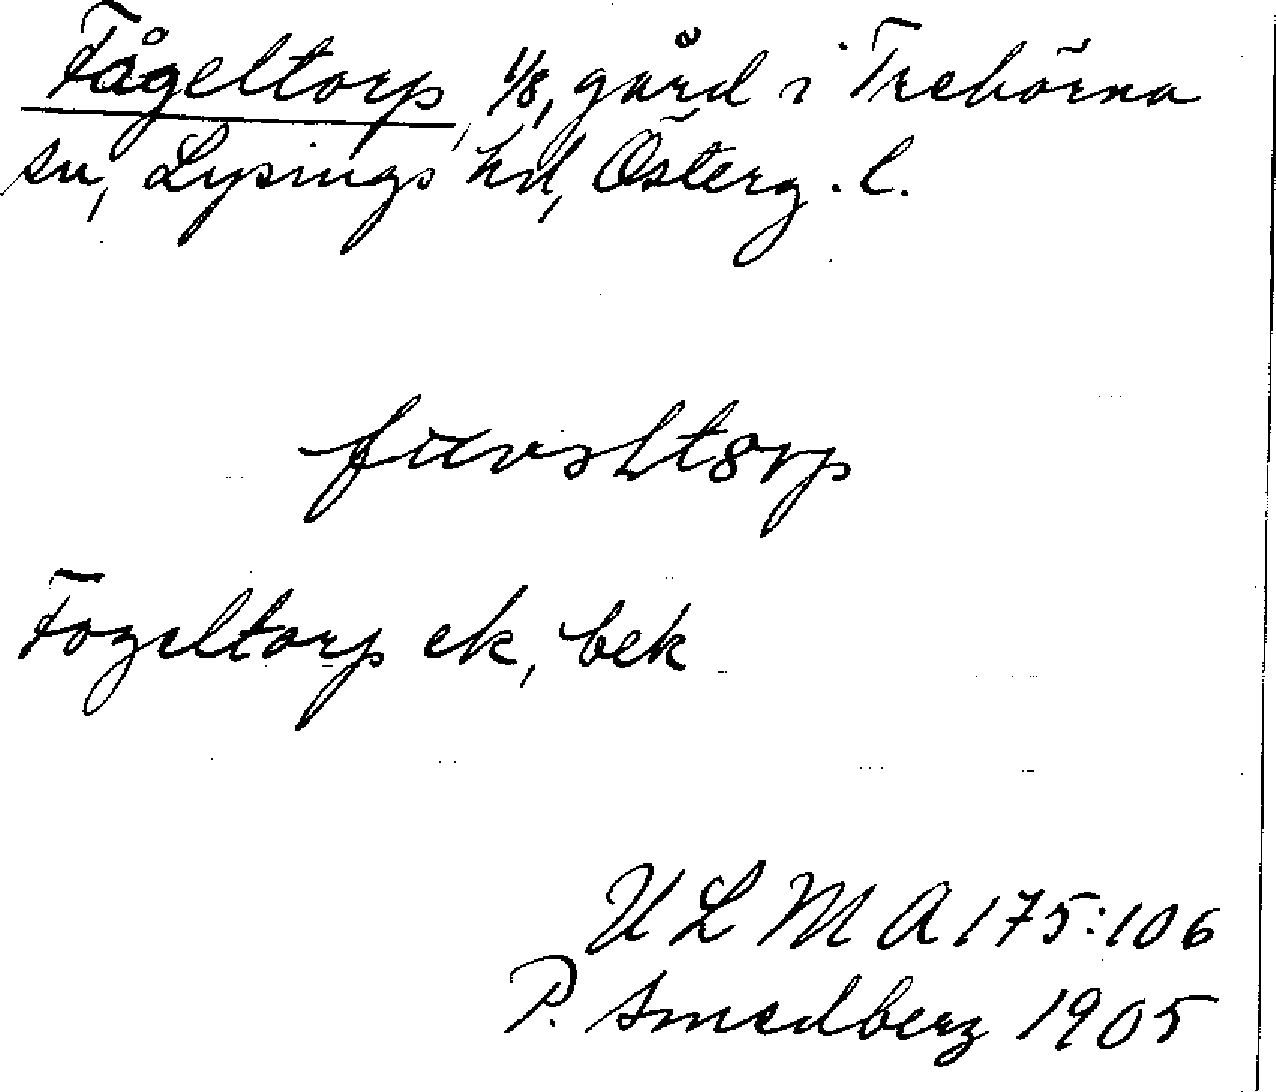 Fågeltorp, 1/8, gård i Trehörna
sn, Lysings hd, Österg. l.
Fogeltorp ek, bek
ULMA 175:106
P. Smedberg 1905